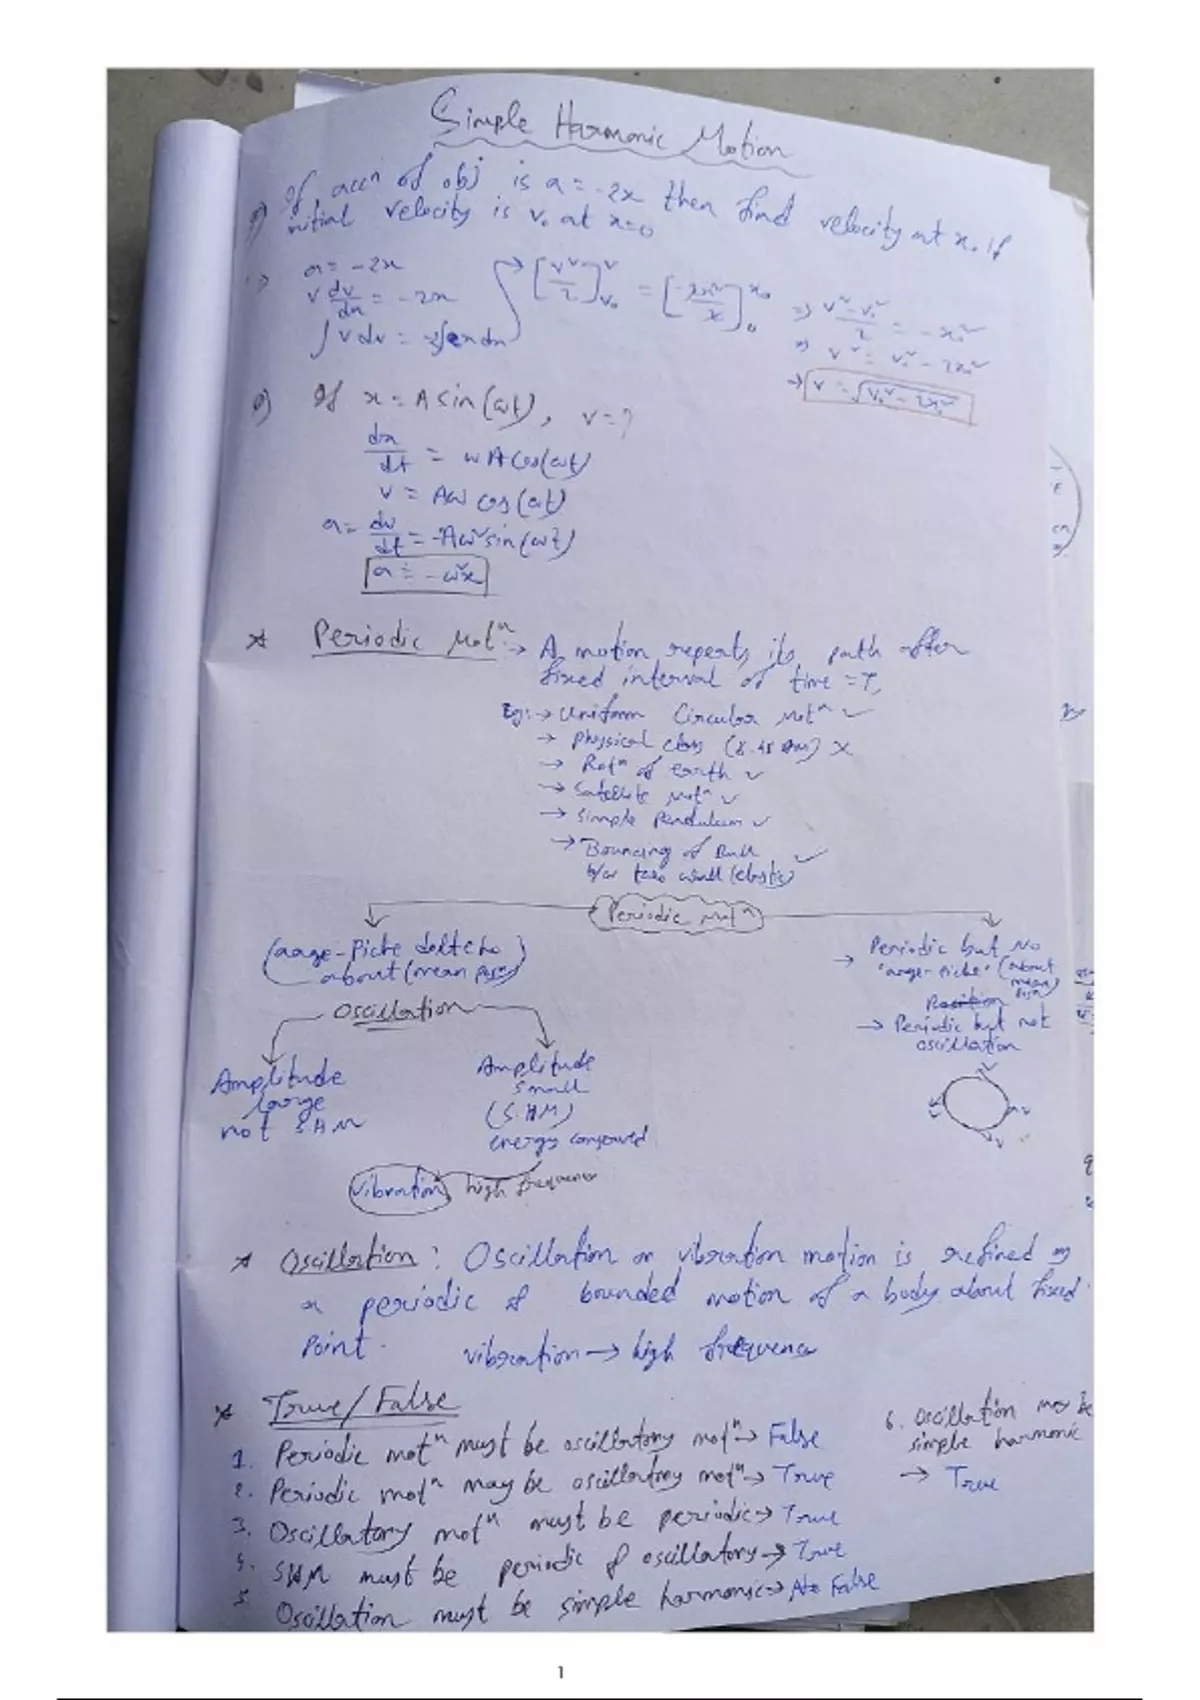 Simple Harmonic Motion
Q) If accn of obj is a = -2x then find velocity at x. if
initial velocity is v₀ at x=0
a = -2x
v dv/dx = -2x
∫v dv = -2∫x dx
→ [v²/2]ᵛᵥ₀ = [-2x²/2]ˣ⁰₀
⇒ v² - v₀²/2 = -x₀²
⇒ v² = v₀² - 2x₀²
→ v = √v₀² - 2x₀²
Q) If x = A sin(ωt), v = ?
dx/dt = ωA cos(ωt)
v = Aω cos(ωt)
a = dv/dt = -Aω² sin(ωt)
a = -ω²x
* Periodic Motⁿ :→ A motion repeats its path after
fixed interval of time = T.
Eg:→ Uniform Circular Motⁿ ✓
→ Physical class (8.45 AM) ✗
→ Rotⁿ of earth ✓
→ Satellite motⁿ ✓
→ Simple Pendulum ✓
→ Bouncing of Ball ✓
b/w two wall (elastic)
Periodic Motⁿ
(aage-Piche
about (mean
Oscillation
Amplitude
large
not SHM
Amplitude
small
(S.HM)
energy conserved
vibration high frequency
→ Periodic but No
"aage-piche" (about
mean
Position
→ Periodic but not
oscillation
* Oscillation : Oscillation or vibration motion is refined as
a periodic & bounded motion of a body about fixed
Point.
vibration → high frequency
* True/False
1. Periodic motⁿ must be oscillatory motⁿ → False
2. Periodic motⁿ may be oscillatory motⁿ → True
3. Oscillatory motⁿ must be periodic → True
4. SHM must be periodic & oscillatory → True
5. Oscillation must be simple harmonic → False
6. Oscillation may be
simple harmonic
→ True
1